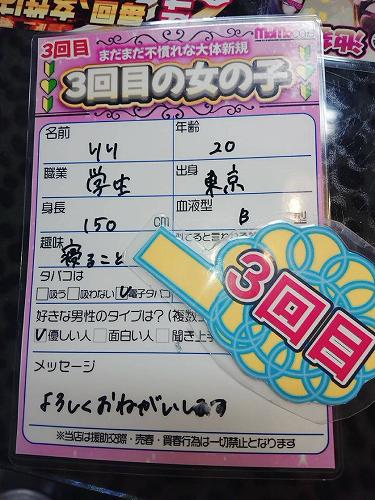 3回目
まだまだ不慣れな大体新規
3回目の女の子
名前
りり
年齢
20
職業
学生
出身
東京
身長
150 cm
血液型
B 型
趣味
寝ること
タバコは
吸う 吸わない 電子タバコ
好きな男性のタイプは？(複数
優しい人 面白い人 聞き上手
メッセージ
よろしくおねがいします
※当店は援助交際・売春・買春行為は一切禁止となります
3回目